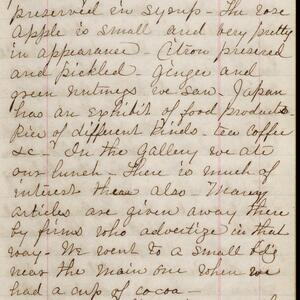 preserved in syrup - The rose
Apple is small and very pretty
in appearance - Citron preserved
and pickled - Ginger and
green nutmegs we saw - Japan
has an exhibit of food products -
Rice of different kinds - tea coffee
&c - In the Gallery we ate
our lunch - There is much of
interest there also - Many
articles are given away there
by firms who advertize in that
way - We went to a small bld'g
near the main one where we
had a cup of cocoa -